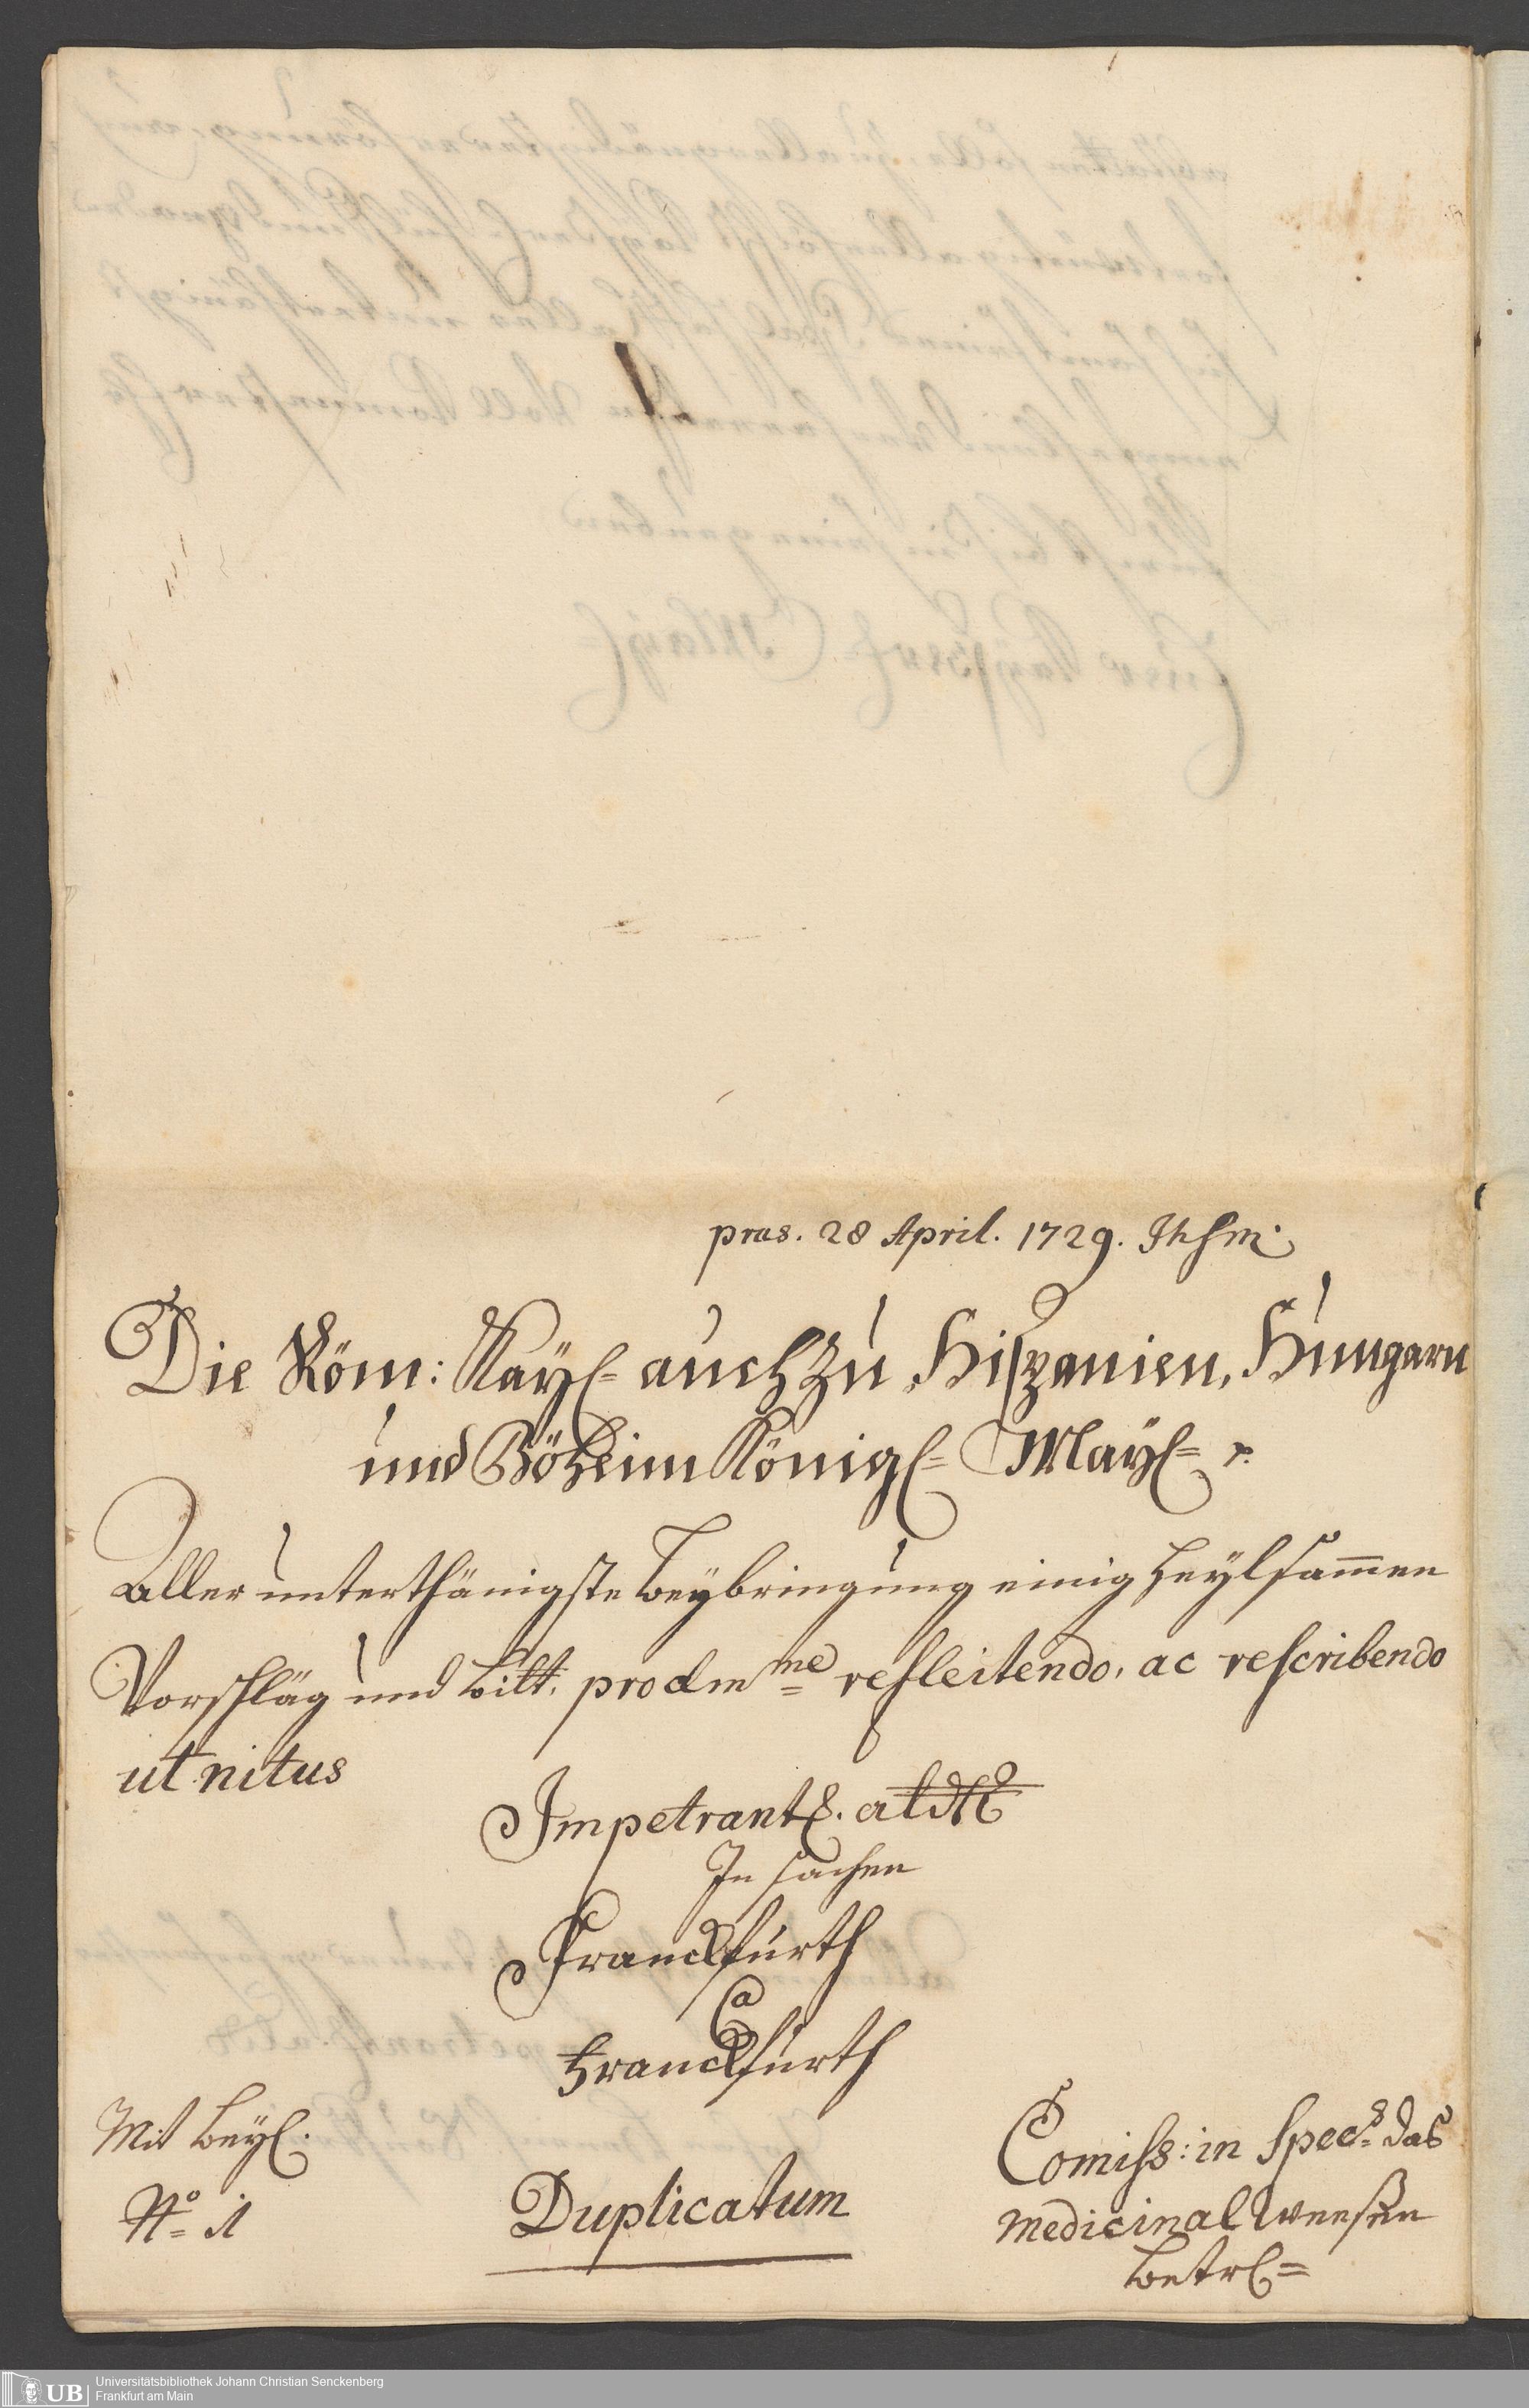 pras. 28 April. 1729.
Die Röm: Kayl= auch zu Hispanien, Hungarn
und Böheim Königl= Mayl= r.
Aller unterthänigste beybringung einig heylsam̄en
Vorschläg und bitt. pro clm̄ne reflectendo, ac rescribendo
ut nitus
Impetrant.
In sachen
Franckfurth
Ca
Franckfurth
Mit beyl.
No= 1
Duplicatum
Comiss: in Spec= das
Medicinal Weeßen
betrl=
Universitätsbibliothek Johann Christian Senckenberg
Frankfurt am Main
UB